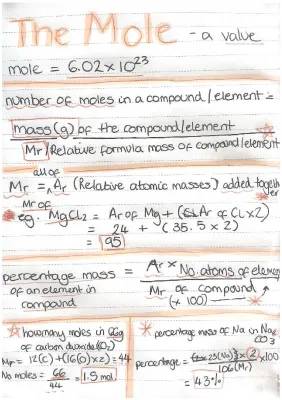 The Mole - a value
mole = 6.02 x 10²³
number of moles in a compound/element =
mass(g) of the compound/element
Mr/Relative formula mass of compound/element
Mr = all of Ar (Relative atomic masses) added together
Mr of
eg. MgCl₂ = Ar of Mg + (Ar of Cl x 2)
= 24 + (35.5 x 2)
= 95
percentage mass = Ar x No. atoms of element
of an element in
compound
Mr of compound
(x 100)
how many moles in 66g
of carbon dioxide (CO₂)
Mr = 12(C) + (16(O) x 2) = 44
No moles = 66/44 = 1.5 mol
percentage mass of Na in Na₂
CO₃
percentage = 23(Na) x 2 x 100
106 (Mr)
= 43%